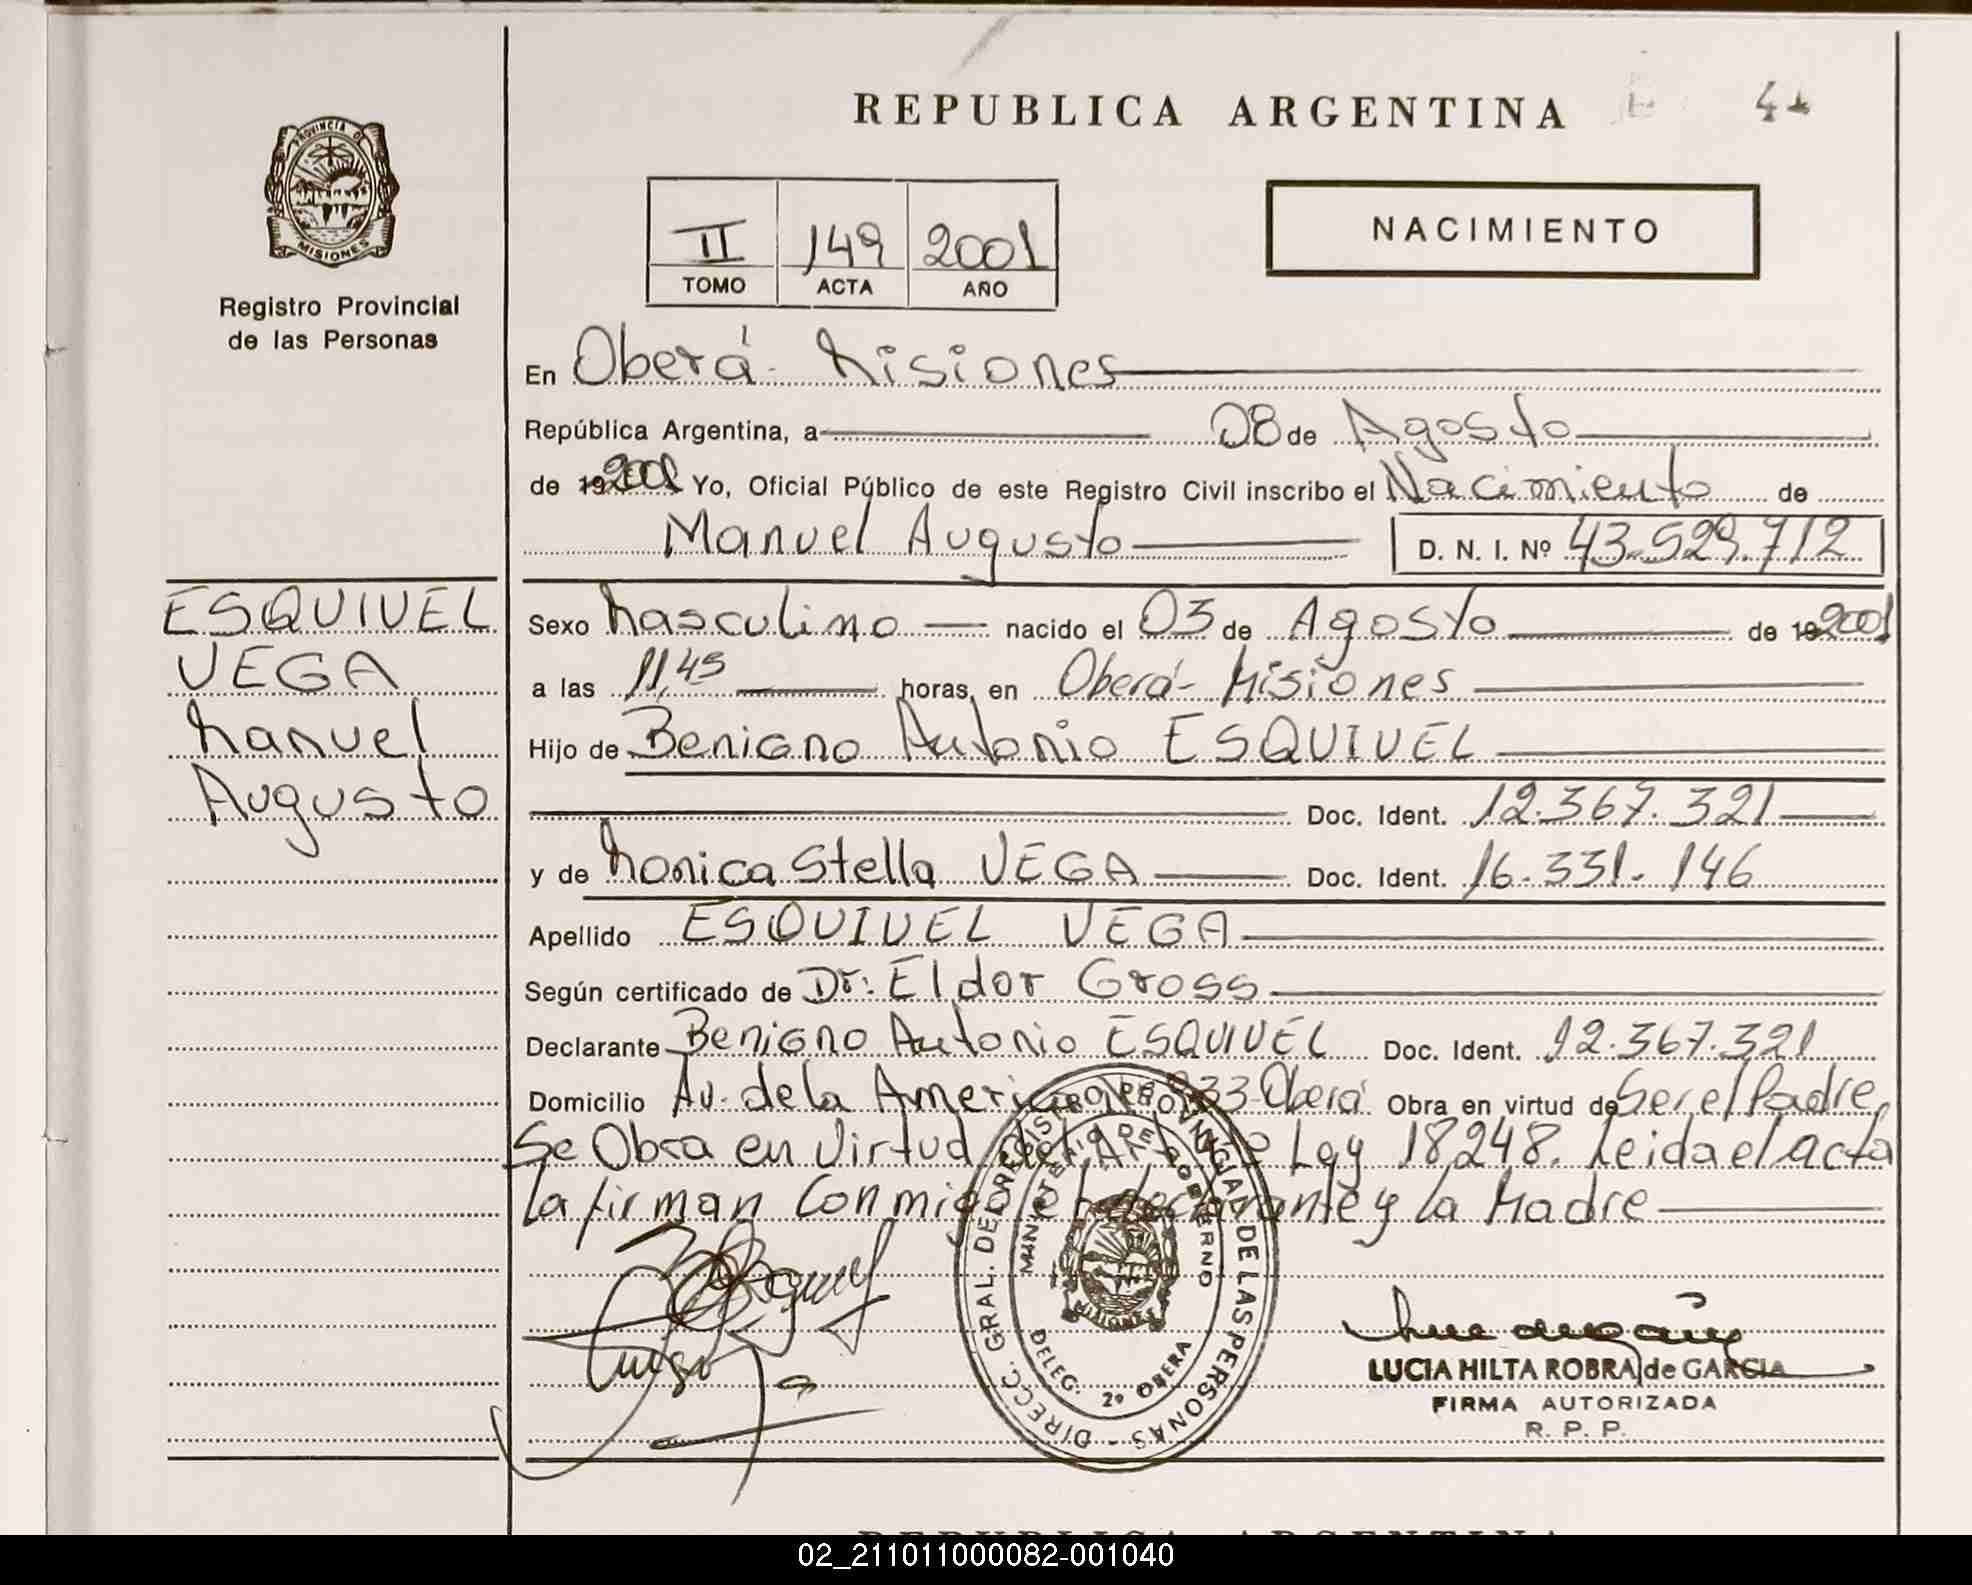 REPUBLICA ARGENTINA
PROVINCIA DE MISIONES
Registro Provincial
de las Personas
II 149 2001
TOMO ACTA AÑO
NACIMIENTO
En Oberá - Misiones
República Argentina, a 08 de Agosto
de 19 2001 Yo, Oficial Público de este Registro Civil inscribo el Nacimiento de
Manuel Augusto D. N. I. Nº 43.529.712
ESQUIVEL
VEGA
Manuel
Augusto
Sexo Masculino nacido el 03 de Agosto de 19 2001
a las 11,45 horas, en Oberá - Misiones
Hijo de Benigno Antonio ESQUIVEL
Doc. Ident. 12.367.321
y de Monica Stella VEGA Doc. Ident. 16.331.146
Apellido ESQUIVEL VEGA
Según certificado de Dr. Eldor Gross
Declarante Benigno Antonio ESQUIVEL Doc. Ident. 12.367.321
Domicilio Av. de la America Oberá Obra en virtud de Ser el Padre,
Se Obra en Virtud del Ley 18.248. Leida el acta
la firman Conmigo el declarante y la Madre
DIRECC. GRAL. DEL REGISTRO PROVINCIAL DE LAS PERSONAS -
MINISTERIO DE GOBIERNO
MISIONES
DELEG. 2º OBERA
LUCIA HILTA ROBRA de GARCIA
FIRMA AUTORIZADA
R. P. P.
REPUBLICA ARGENTINA
02_211011000082-001040